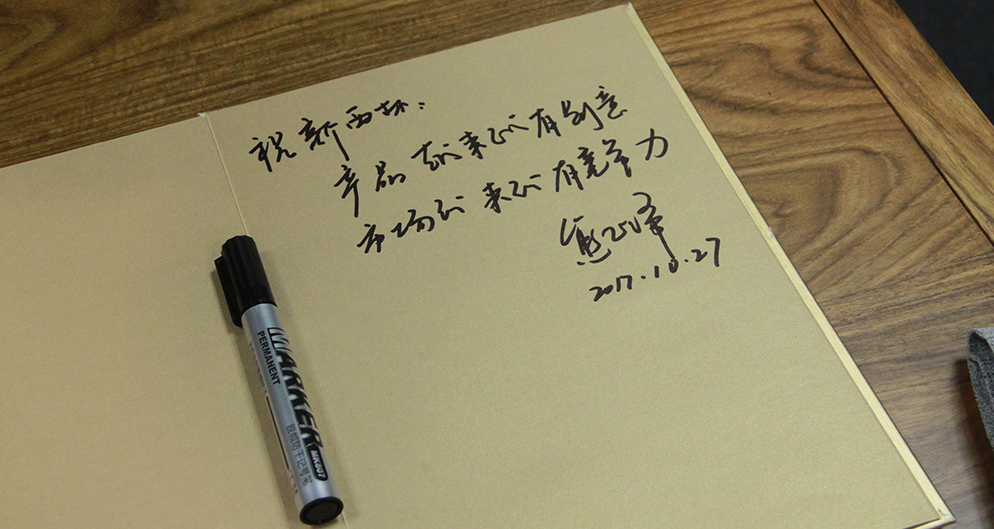 祝新西林:
产品越来越有创意
市场越来越有竞争力
2017.10.27
MARKER
PERMANENT
MK007